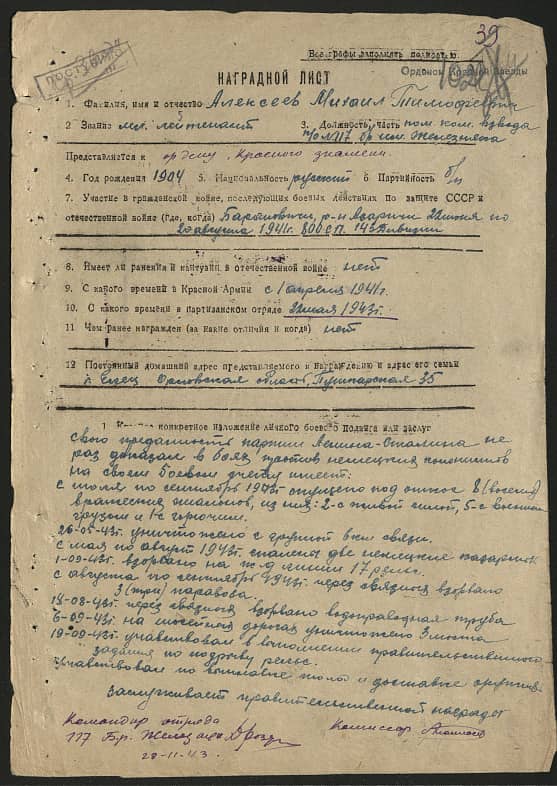 39
Все графы заполнять полностью.
Орденом Красной Звезды
НАГРАДНОЙ ЛИСТ
1. Фамилия, имя и отчество Алексеев Михаил Тимофеевич
2 Звание мл. лейтенант 3. Должность, часть пом. ком. взвода
п/о №117 бр. им. Железняка
Представляется к ордену „Красного знамени“
4. Год рождения 1904 5. Национальность русский 6 Партийность б/п
7. Участие в гражданской войне, последующих боевых действиях по защите СССР и
отечественной войне (где, когда) р-н 22 июня по
20 августа 1941г. 800 с.п. 143 дивизии
8. Имеет ли ранения и контузии в отечественной войне нет
9. С какого времени в Красной Армии с 1 апреля 1941г.
10. С какого времени в партизанском отряде 22 мая 1943г.
11 Чем ранее награжден (за какие отличия и когда) нет
12 Постоянный домашний адрес представляемого к награждению и адрес его семьи
г. Елец Орловская область, Пушкарская 35
1. Краткое конкретное изложение личного боевого подвига или заслуг
Свою преданность партии Ленина-Сталина не
раз доказал в боях против немецких
на своем боевом счету имеет:
с июля по сентябрь 1943г. спущено под откос 8 (восемь)
вражеских эшелонов, из них: 2-с живой силой, 5-с военным
грузом и 1-с горючим.
26-05-43г. уничтожено с группой 8 км связи.
С мая по август 1943г. спалены две немецкие казармы
1-09-43г. взорвано на ж.д. линии 17 рельс.
С августа по сентябрь 1943г. через связного взорвано
3 (три) паровоза.
18-08-43г. через связного взорвано водопроводная труба
6-09-43г. на шоссейных дорогах уничтожено 3 моста
19-09-43г. участвовал в выполнении правительственного
задания по подрыву рельс.
Участвовал по и доставке оружия.
Заслуживает правительственной награды
Командир отряда
117 Бр. Железняка
Комиссар
28-11-43.